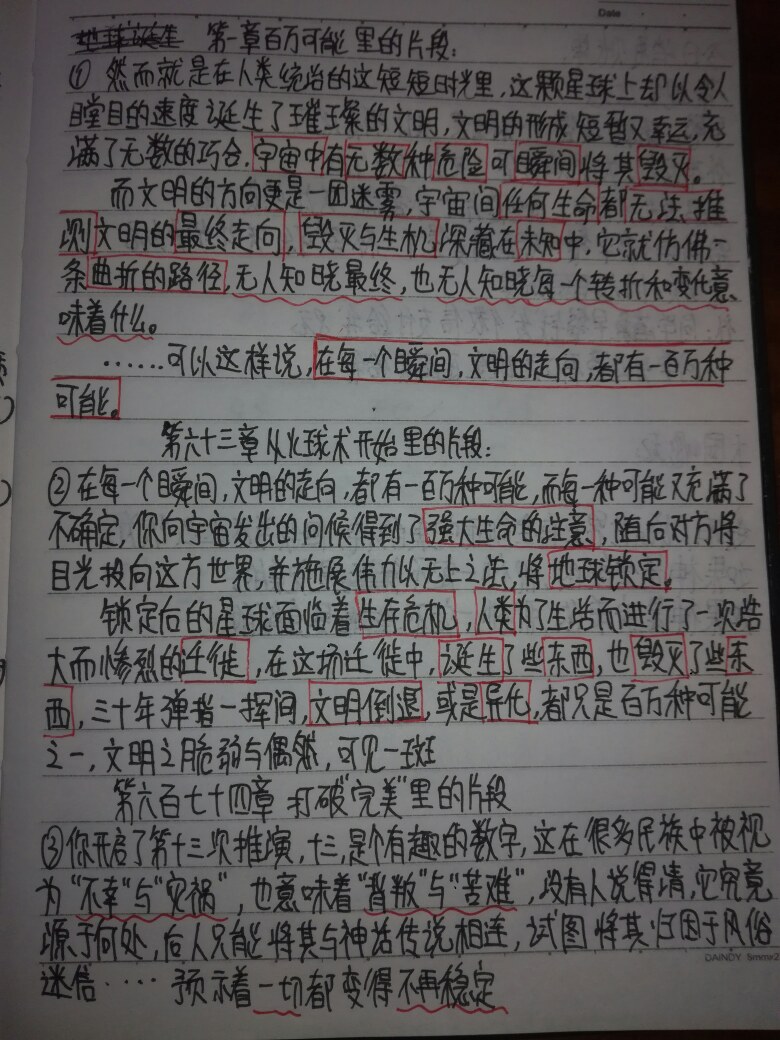 Date
地球诞生 第一章百万可能里的片段:
① 然而就是在人类统治的这短短时光里,这颗星球上却以令人
瞠目的速度诞生了璀璨的文明,文明的形成短暂又幸运,充
满了无数的巧合,宇宙中有无数种危险可瞬间将其毁灭。
而文明的方向更是一团迷雾,宇宙间任何生命都无法推
测文明的最终走向,毁灭与生机深藏在未知中,它就仿佛一
条曲折的路径,无人知晓最终,也无人知晓每一个转折和变化意
味着什么。
……可以这样说,在每一个瞬间,文明的走向,都有一百万种
可能。
第六十三章从火球术开始里的片段:
②在每一个瞬间,文明的走向,都有一百万种可能,而每一种可能又充满了
不确定,你向宇宙发出的问候得到了强大生命的注意,随后对方将
目光投向这方世界,并施展伟力以无上之法,将地球锁定。
锁定后的星球面临着生存危机,人类为了生活而进行了一次浩
大而惨烈的迁徙,在这场迁徙中,诞生了些东西,也毁灭了些东
西,三十年弹指一挥间,文明倒退,或是异化,都只是百万种可能
之一,文明之脆弱与偶然,可见一斑
第六百七十四章 打破"完美"里的片段
③你开启了第十三次推演,十三,是个有趣的数字,这在很多民族中被视
为"不幸"与"灾祸",也意味着"背叛"与"苦难",没有人说得清,它究竟
源于何处,后人只能将其与神话传说相连,试图将其归因于风俗
DAINDY 5mmx2
迷信…… 预示着一切都变得不再稳定